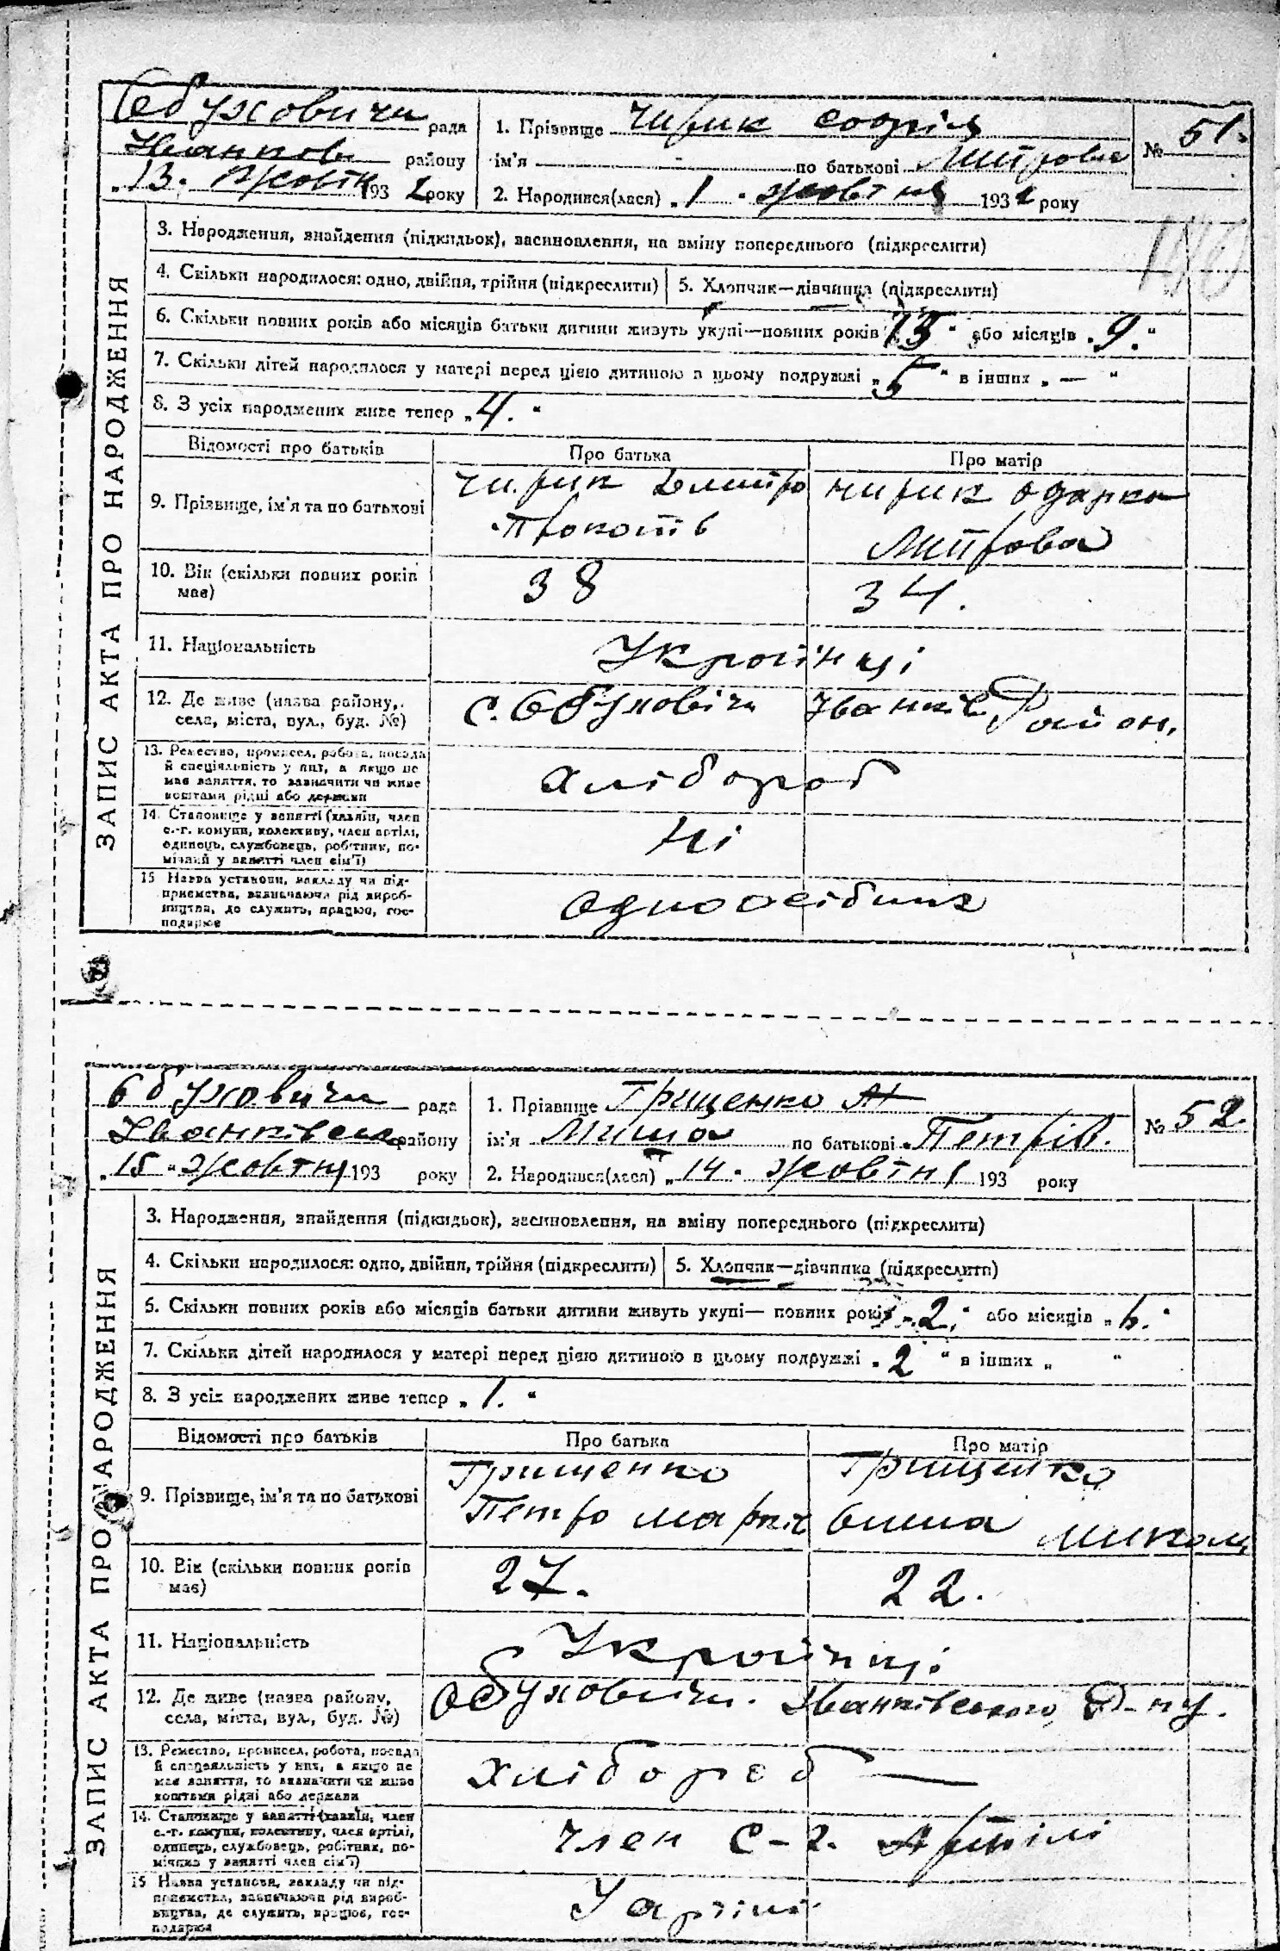 Обуховичи рада
Іванков району
„13. жовтн 1932 року
1. Прізвище Чирик Софія
ім'я - по батькові Митрова
2. Народився(лася) „1. жовтня 1932 року
№ 51.
ЗАПИС АКТА ПРО НАРОДЖЕННЯ
3. Народження, знайдення (підкидьок), засиновлення, на зміну попереднього (підкреслити)
4. Скільки народилося: одно, двійня, трійня (підкреслити)
5. Хлопчик—дівчинка (підкреслити)
6. Скільки повних років або місяців батьки дитини живуть укупі—повних років 13 " або місяців „9."
7. Скільки дітей народилося у матері перед цією дитиною в цьому подружжі „5" в інших „—"
8. З усіх народжених живе тепер „4."
Відомості про батьків
Про батька
Про матір
9. Прізвище, ім'я та по батькові
Чирик Дмитро
Прокопів
Чирик Одарка
Митрова
10. Вік (скільки повних років має)
38
34.
11. Національність
Українці
12. Де живе (назва району, села, міста, вул., буд. №)
с. Обуховічи Іванків Район.
13. Ремество, промисел, робота, посада й спеціяльність у них, а якщо не має заняття, то зазначити чи живе коштами рідні або держави
Хлібороб
14. Становище у занятті (хазяїн, член с.-г. комуни, колективу, член артілі, одинець, службовець, робітник, помічний у занятті член сім'ї)
Ні
15 Назва установи, закладу чи підприємства, зазначаючи рід виробництва, де служить, працює, господарює
одноосібник
Обуховичи рада
Іванківськ району
„15 " жовтня 193 року
1. Прізвище Грищенко
ім'я Миша по батькові Петрів.
2. Народився(лася) „14. жовтня 193 року
№ 52.
ЗАПИС АКТА ПРО НАРОДЖЕННЯ
3. Народження, знайдення (підкидьок), засиновлення, на зміну попереднього (підкреслити)
4. Скільки народилося: одно, двійня, трійня (підкреслити)
5. Хлопчик—дівчинка (підкреслити)
6. Скільки повних років або місяців батьки дитини живуть укупі— повних років „2." або місяців „6."
7. Скільки дітей народилося у матері перед цією дитиною в цьому подружжі „2" в інших „ "
8. З усіх народжених живе тепер „1."
Відомості про батьків
Про батька
Про матір
9. Прізвище, ім'я та по батькові
Грищенко
Петро
Грищенко
Микол
10. Вік (скільки повних років має)
27.
22.
11. Національність
Українці
12. Де живе (назва району, села, міста, вул., буд. №)
Обуховичи. Іванківського Р-ну.
13. Ремество, промисел, робота, посада й спеціяльність у них, а якщо не має заняття, то зазначити чи живе коштами рідні або держави
Хлібороб —
14. Становище у занятті (хазяїн, член с.-г. комуни, колективу, член артілі, одинець, службовець, робітник, помічний у занятті член сім'ї)
член с-г. Артілі
15 Назва установи, закладу чи підприємства, зазначаючи рід виробництва, де служить, працює, господарює
У артілі